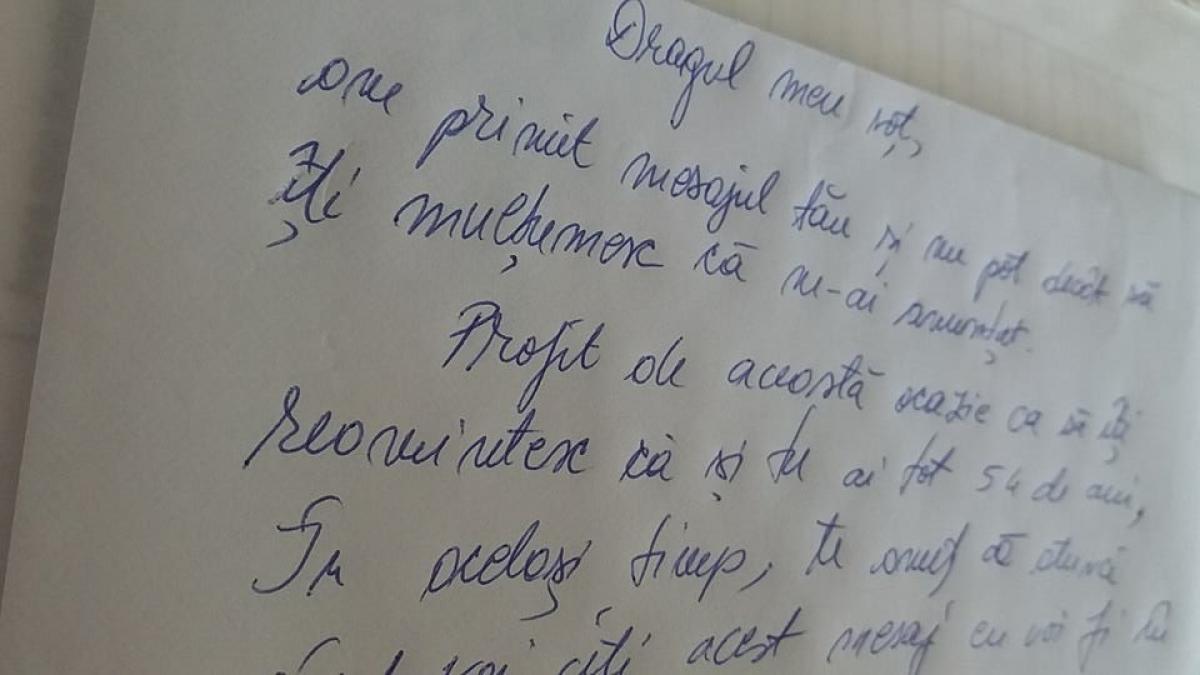 Dragul meu soț,
am primit mesajul tău și nu pot decât să
Îți mulțumesc că m-ai anunțat.
Profit de această ocazie ca să îți
reamintesc că și tu ai tot 54 de ani,
În același timp, te anunț că atunci
când vei citi acest mesaj eu voi fi la